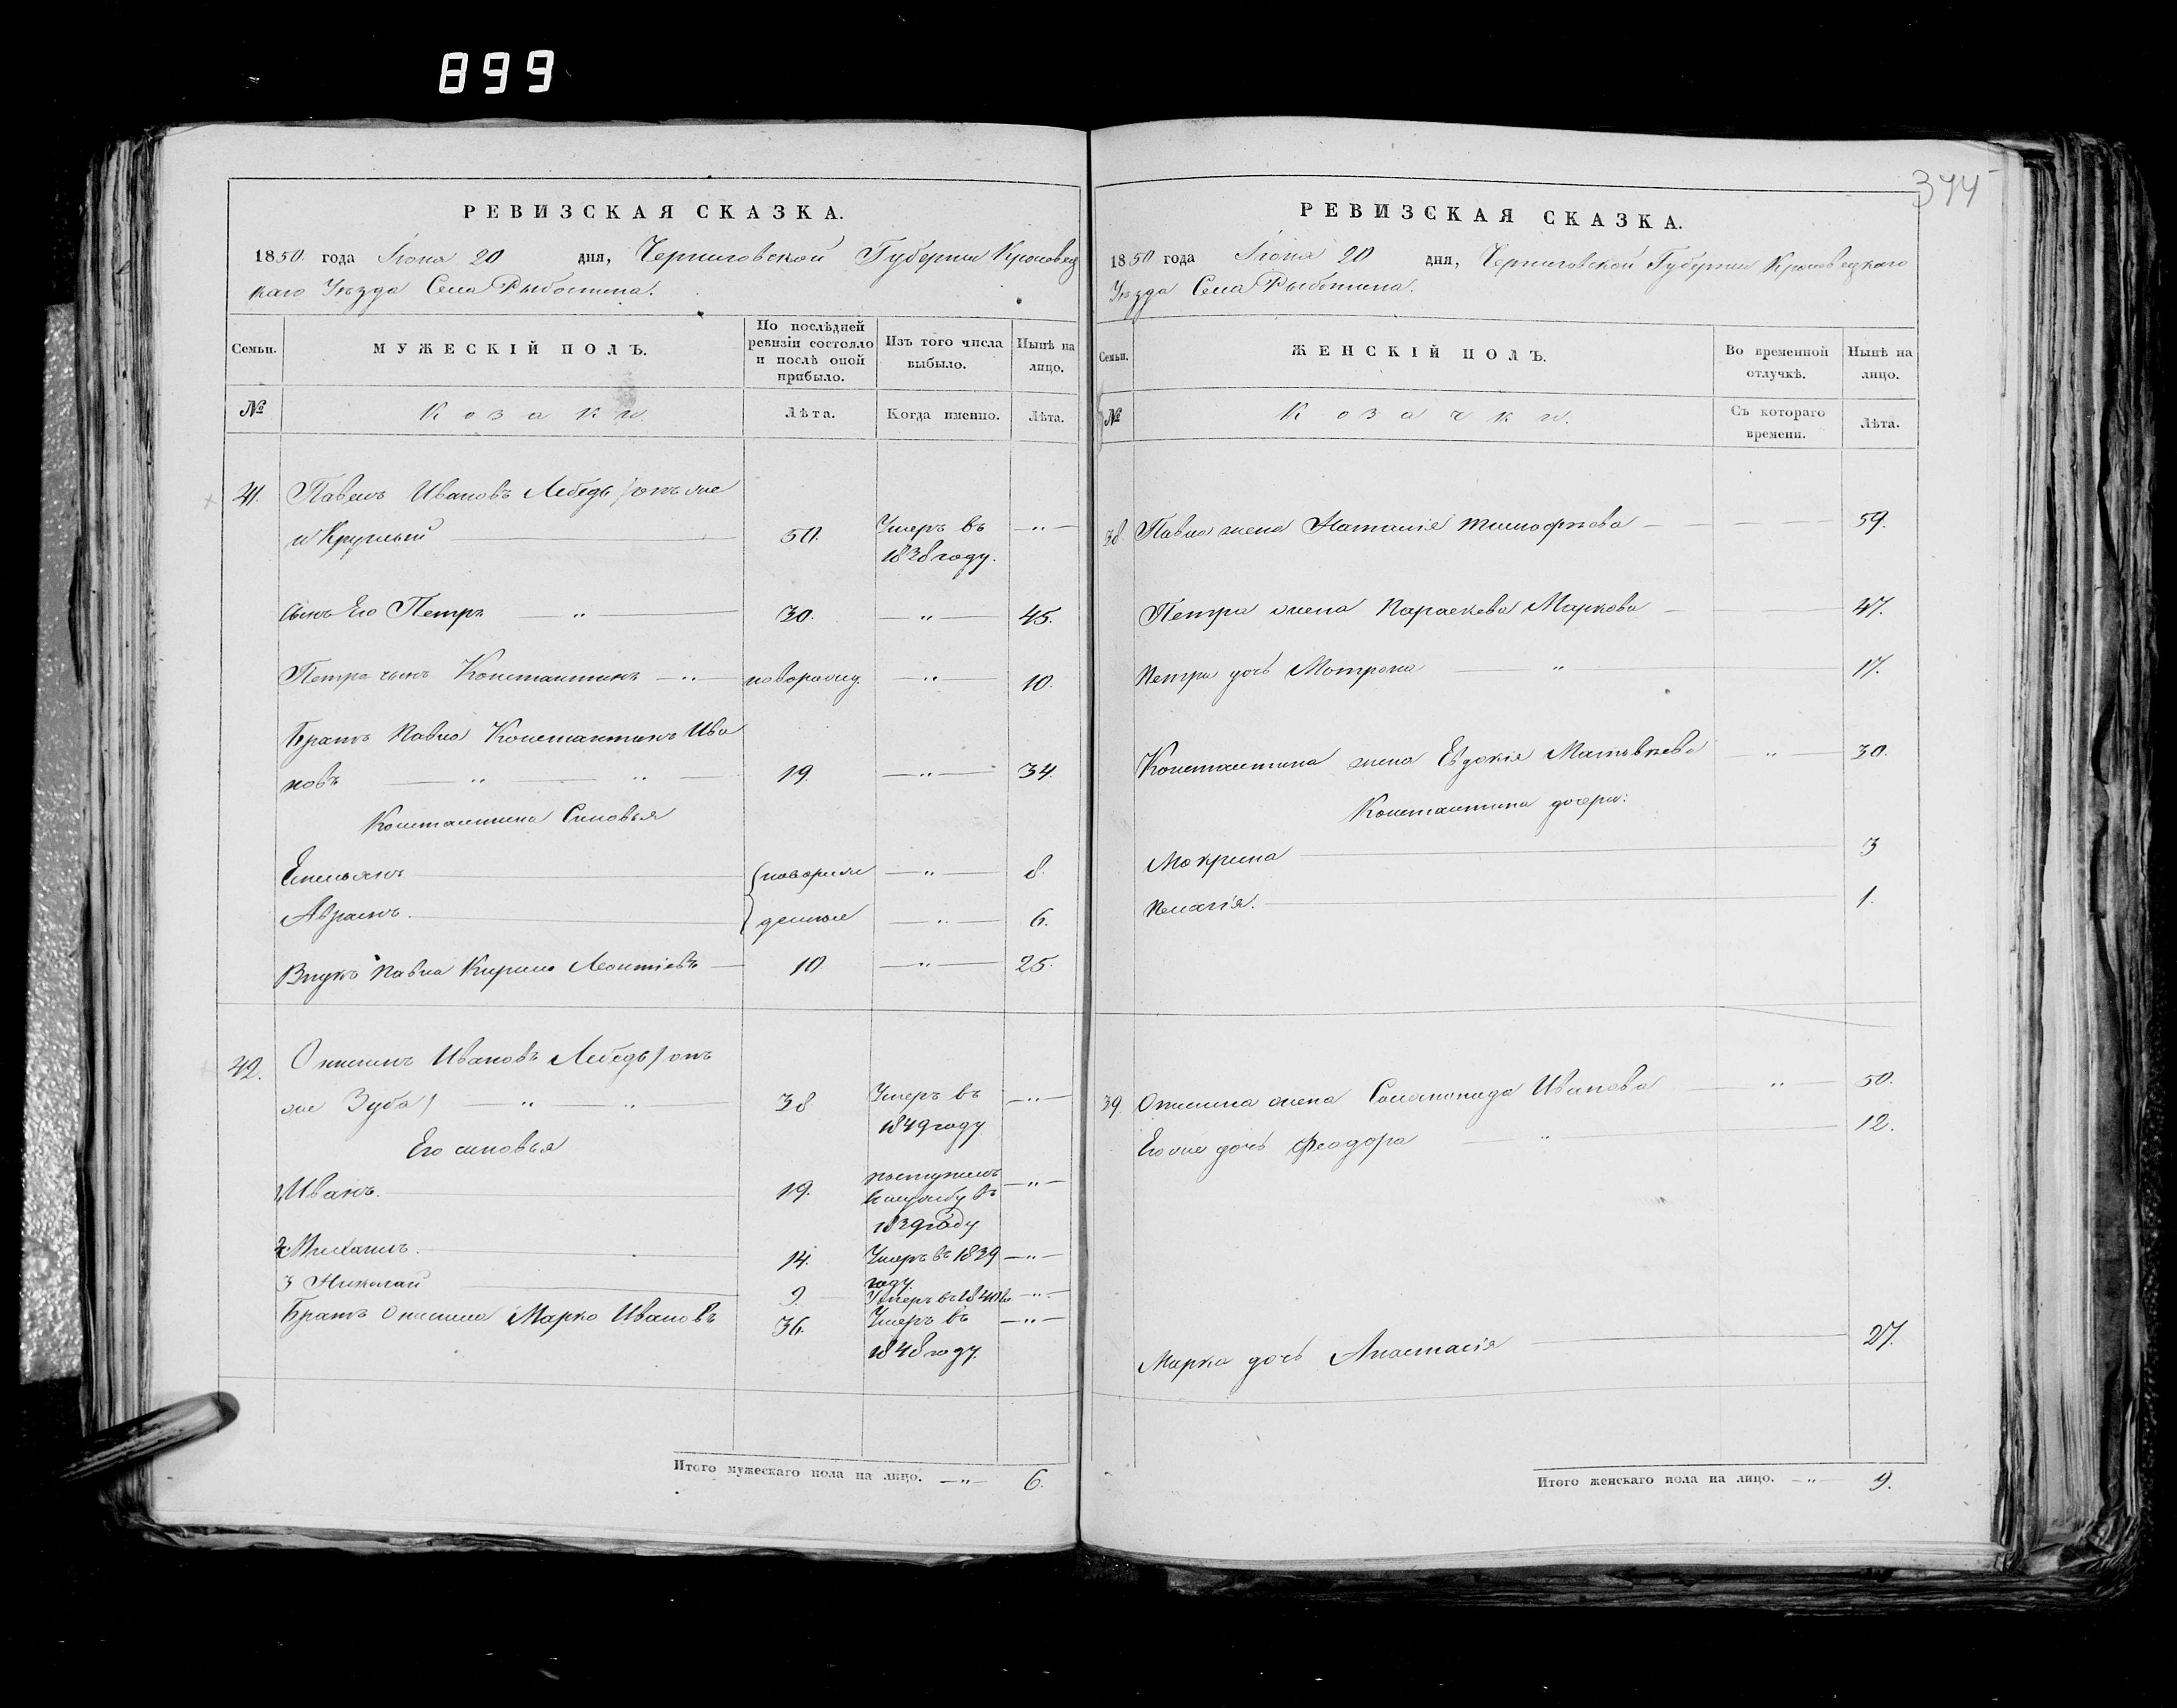 899
344
РЕВИЗСКАЯ СКАЗКА.
1850. года Іюня 20 дня, Черниговской Губерніи Кролевец
каго Уѣзда Села Рыботина.
Семьи.
МУЖЕСКІЙ ПОЛЪ.
По послѣдней ревизіи состояло и послѣ оной прибыло.
Изъ того числа выбыло.
Нынѣ на лицо.
№
Козаки.
Лѣта.
Когда именно.
Лѣта.
41. Павелъ Ивановъ Лебедь /онъ же
и Круглый 50. Умеръ въ 1838 году. — „ —
Сынъ Его Петръ — „ — 30. — „ — 45.
Петра сынъ Константинъ — „ — новорожд. — „ — 10.
Братъ Павла Константинъ Ива
новъ — „ — „ — 19. — „ — 34.
Константина Синовья
Емельянъ новорож — „ — 8.
Абрамъ. денные — „ — 6.
Внукъ Павла Кирило Леонтіевъ — 10. — „ — 25.
42. Онисимъ Ивановъ Лебедь / онъ
же Зуба / — „ — „ — 38 Умеръ въ 1849 году — „ —
Его синовья
1, Иванъ. 19. поступилъ в службу въ 1839 году — „ —
2, Михаилъ. 14. Умеръ въ 1839 году — „ —
3 Николай 9. Умеръ въ 1840 — „ —
Братъ Онисима Марко Ивановъ 36. Умеръ въ 1848 году. — „ —
Итого мужескаго пола на лицо. — „ — 6.
РЕВИЗСКАЯ СКАЗКА.
1850 года Іюня 20 дня, Черниговской Губерніи Кролевецкаго
Уѣзда Села Рыботина.
Семьи.
ЖЕНСКІЙ ПОЛЪ.
Во временной отлучкѣ.
Нынѣ на лицо.
№
Козачки.
Съ котораго времени.
Лѣта.
38. Павла жена Наталія Тимофѣева — 59.
Петра жена Параскева Маркова — 47.
Петра дочь Мотрона — „ — 17.
Константина жена Евдокія Матвѣева — „ — 30.
Константина дочери:
Мокрина 3
Пелагія. 1.
39. Онисима жена Соломонида Иванова — „ — 50.
Его же дочь Феодора — „ — 12.
Марка дочь Анастасія 27.
Итого женскаго пола на лицо. — „ — 9.